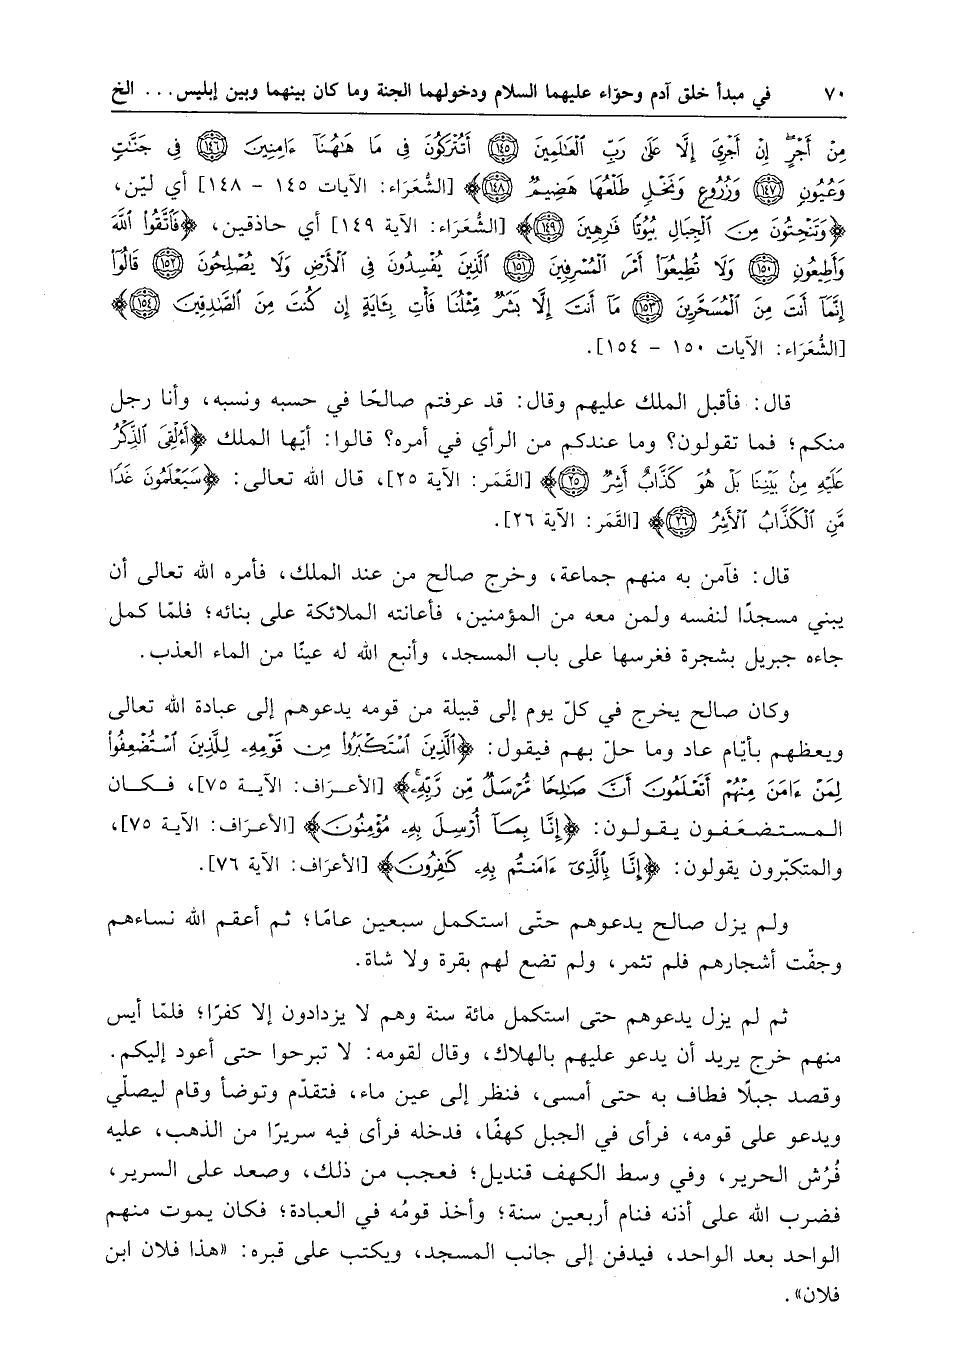 ٧٠ في مبدأ خلق آدم وحوّاء عليهما السلام ودخولهما الجنة وما كان بينهما وبين إبليس... الخ
مِنْ أَجْرٍ إِنْ أَجْرِيَ إِلَّا عَلَىٰ رَبِّ الْعَالَمِينَ ﴿١٤٥﴾ أَتُتْرَكُونَ فِي مَا هَاهُنَا ءَامِنِينَ ﴿١٤٦﴾ فِي جَنَّاتٍ
وَعُيُونٍ ﴿١٤٧﴾ وَزُرُوعٍ وَنَخْلٍ طَلْعُهَا هَضِيمٌ ﴿١٤٨﴾﴾ [الشُّعَرَاء: الآيات ١٤٥ - ١٤٨] أي ليّن،
﴿وَتَنْحِتُونَ مِنَ الْجِبَالِ بُيُوتًا فَارِهِينَ ﴿١٤٩﴾﴾ [الشُّعَرَاء: الآية ١٤٩] أي حاذقين، ﴿فَاتَّقُوا اللَّهَ
وَأَطِيعُونِ ﴿١٥٠﴾ وَلَا تُطِيعُوا أَمْرَ الْمُسْرِفِينَ ﴿١٥١﴾ الَّذِينَ يُفْسِدُونَ فِي الْأَرْضِ وَلَا يُصْلِحُونَ ﴿١٥٢﴾ قَالُوا
إِنَّمَا أَنتَ مِنَ الْمُسَحَّرِينَ ﴿١٥٣﴾ مَا أَنتَ إِلَّا بَشَرٌ مِّثْلُنَا فَأْتِ بِـَٔايَةٍ إِن كُنتَ مِنَ الصَّادِقِينَ ﴿١٥٤﴾﴾
[الشُّعَرَاء: الآيات ١٥٠ - ١٥٤].
قال: فأقبل الملك عليهم وقال: قد عرفتم صالحًا في حسبه ونسبه، وأنا رجل
منكم؛ فما تقولون؟ وما عندكم من الرأي في أمره؟ قالوا: أيّها الملك ﴿أَءُلْقِيَ الذِّكْرُ
عَلَيْهِ مِنْ بَيْنِنَا بَلْ هُوَ كَذَّابٌ أَشِرٌ ﴿٢٥﴾﴾ [القَمَر: الآية ٢٥]، قال الله تعالى: ﴿سَيَعْلَمُونَ غَدًا
مَّنِ الْكَذَّابُ الْأَشِرُ ﴿٢٦﴾﴾ [القَمَر: الآية ٢٦].
قال: فآمن به منهم جماعة، وخرج صالح من عند الملك، فأمره الله تعالى أن
يبني مسجدًا لنفسه ولمن معه من المؤمنين، فأعانته الملائكة على بنائه؛ فلمّا كمل
جاءه جبريل بشجرة فغرسها على باب المسجد، وأنبع الله له عينًا من الماء العذب.
وكان صالح يخرج في كلّ يوم إلى قبيلة من قومه يدعوهم إلى عبادة الله تعالى
ويعظهم بأيّام عاد وما حلّ بهم فيقول: ﴿الَّذِينَ اسْتَكْبَرُوا مِن قَوْمِهِ لِلَّذِينَ اسْتُضْعِفُوا
لِمَنْ ءَامَنَ مِنْهُمْ أَتَعْلَمُونَ أَنَّ صَالِحًا مُّرْسَلٌ مِّن رَّبِّهِ﴾ [الأعرَاف: الآية ٧٥]، فكان
المستضعَفون يقولون: ﴿إِنَّا بِمَا أُرْسِلَ بِهِ مُؤْمِنُونَ﴾ [الأعرَاف: الآية ٧٥]،
والمتكبّرون يقولون: ﴿إِنَّا بِالَّذِي ءَامَنتُم بِهِ كَافِرُونَ﴾ [الأعرَاف: الآية ٧٦].
ولم يزل صالح يدعوهم حتّى استكمل سبعين عامًا؛ ثم أعقم الله نساءهم
وجفّت أشجارهم فلم تثمر، ولم تضع لهم بقرة ولا شاة.
ثم لم يزل يدعوهم حتى استكمل مائة سنة وهم لا يزدادون إلا كفرًا؛ فلمّا أيس
منهم خرج يريد أن يدعو عليهم بالهلاك، وقال لقومه: لا تبرحوا حتى أعود إليكم.
وقصد جبلًا فطاف به حتى أمسى، فنظر إلى عين ماء، فتقدّم وتوضأ وقام ليصلّي
ويدعو على قومه، فرأى في الجبل كهفًا، فدخله فرأى فيه سريرًا من الذهب، عليه
فُرُش الحرير، وفي وسط الكهف قنديل؛ فعجب من ذلك، وصعد على السرير،
فضرب الله على أذنه فنام أربعين سنة؛ وأخذ قومُه في العبادة؛ فكان يموت منهم
الواحد بعد الواحد، فيدفن إلى جانب المسجد، ويكتب على قبره: «هذا فلان ابن
فلان».